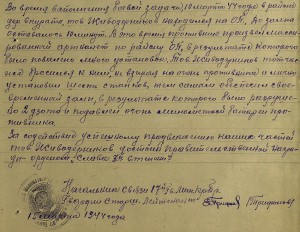 Во время выполнения боевой задачи 10 марта 44 года в районе
тов Живодерников находился на ОП. До залпа
оставалось 10 минут. В это время противник произвел масси-
рованный артналет по району ОП, в результате которого
было повалено много установок. Тов Живодерников тот час
же бросился к ним, не взирая на огонь противника и лично
установил шесть станков, тем самым обеспечил свое-
временный залп, в результате которого было разруше-
но 2 дзота и подавлен огонь минометной батареи про-
тивника.
За содействие успешному продвижению наших частей
тов Живодерников достоин правительственной награ-
ды ордена "Слава 3й степени"
Начальник связи 17
Гвардии Старш. Лейтенант
15 марта 1944 года